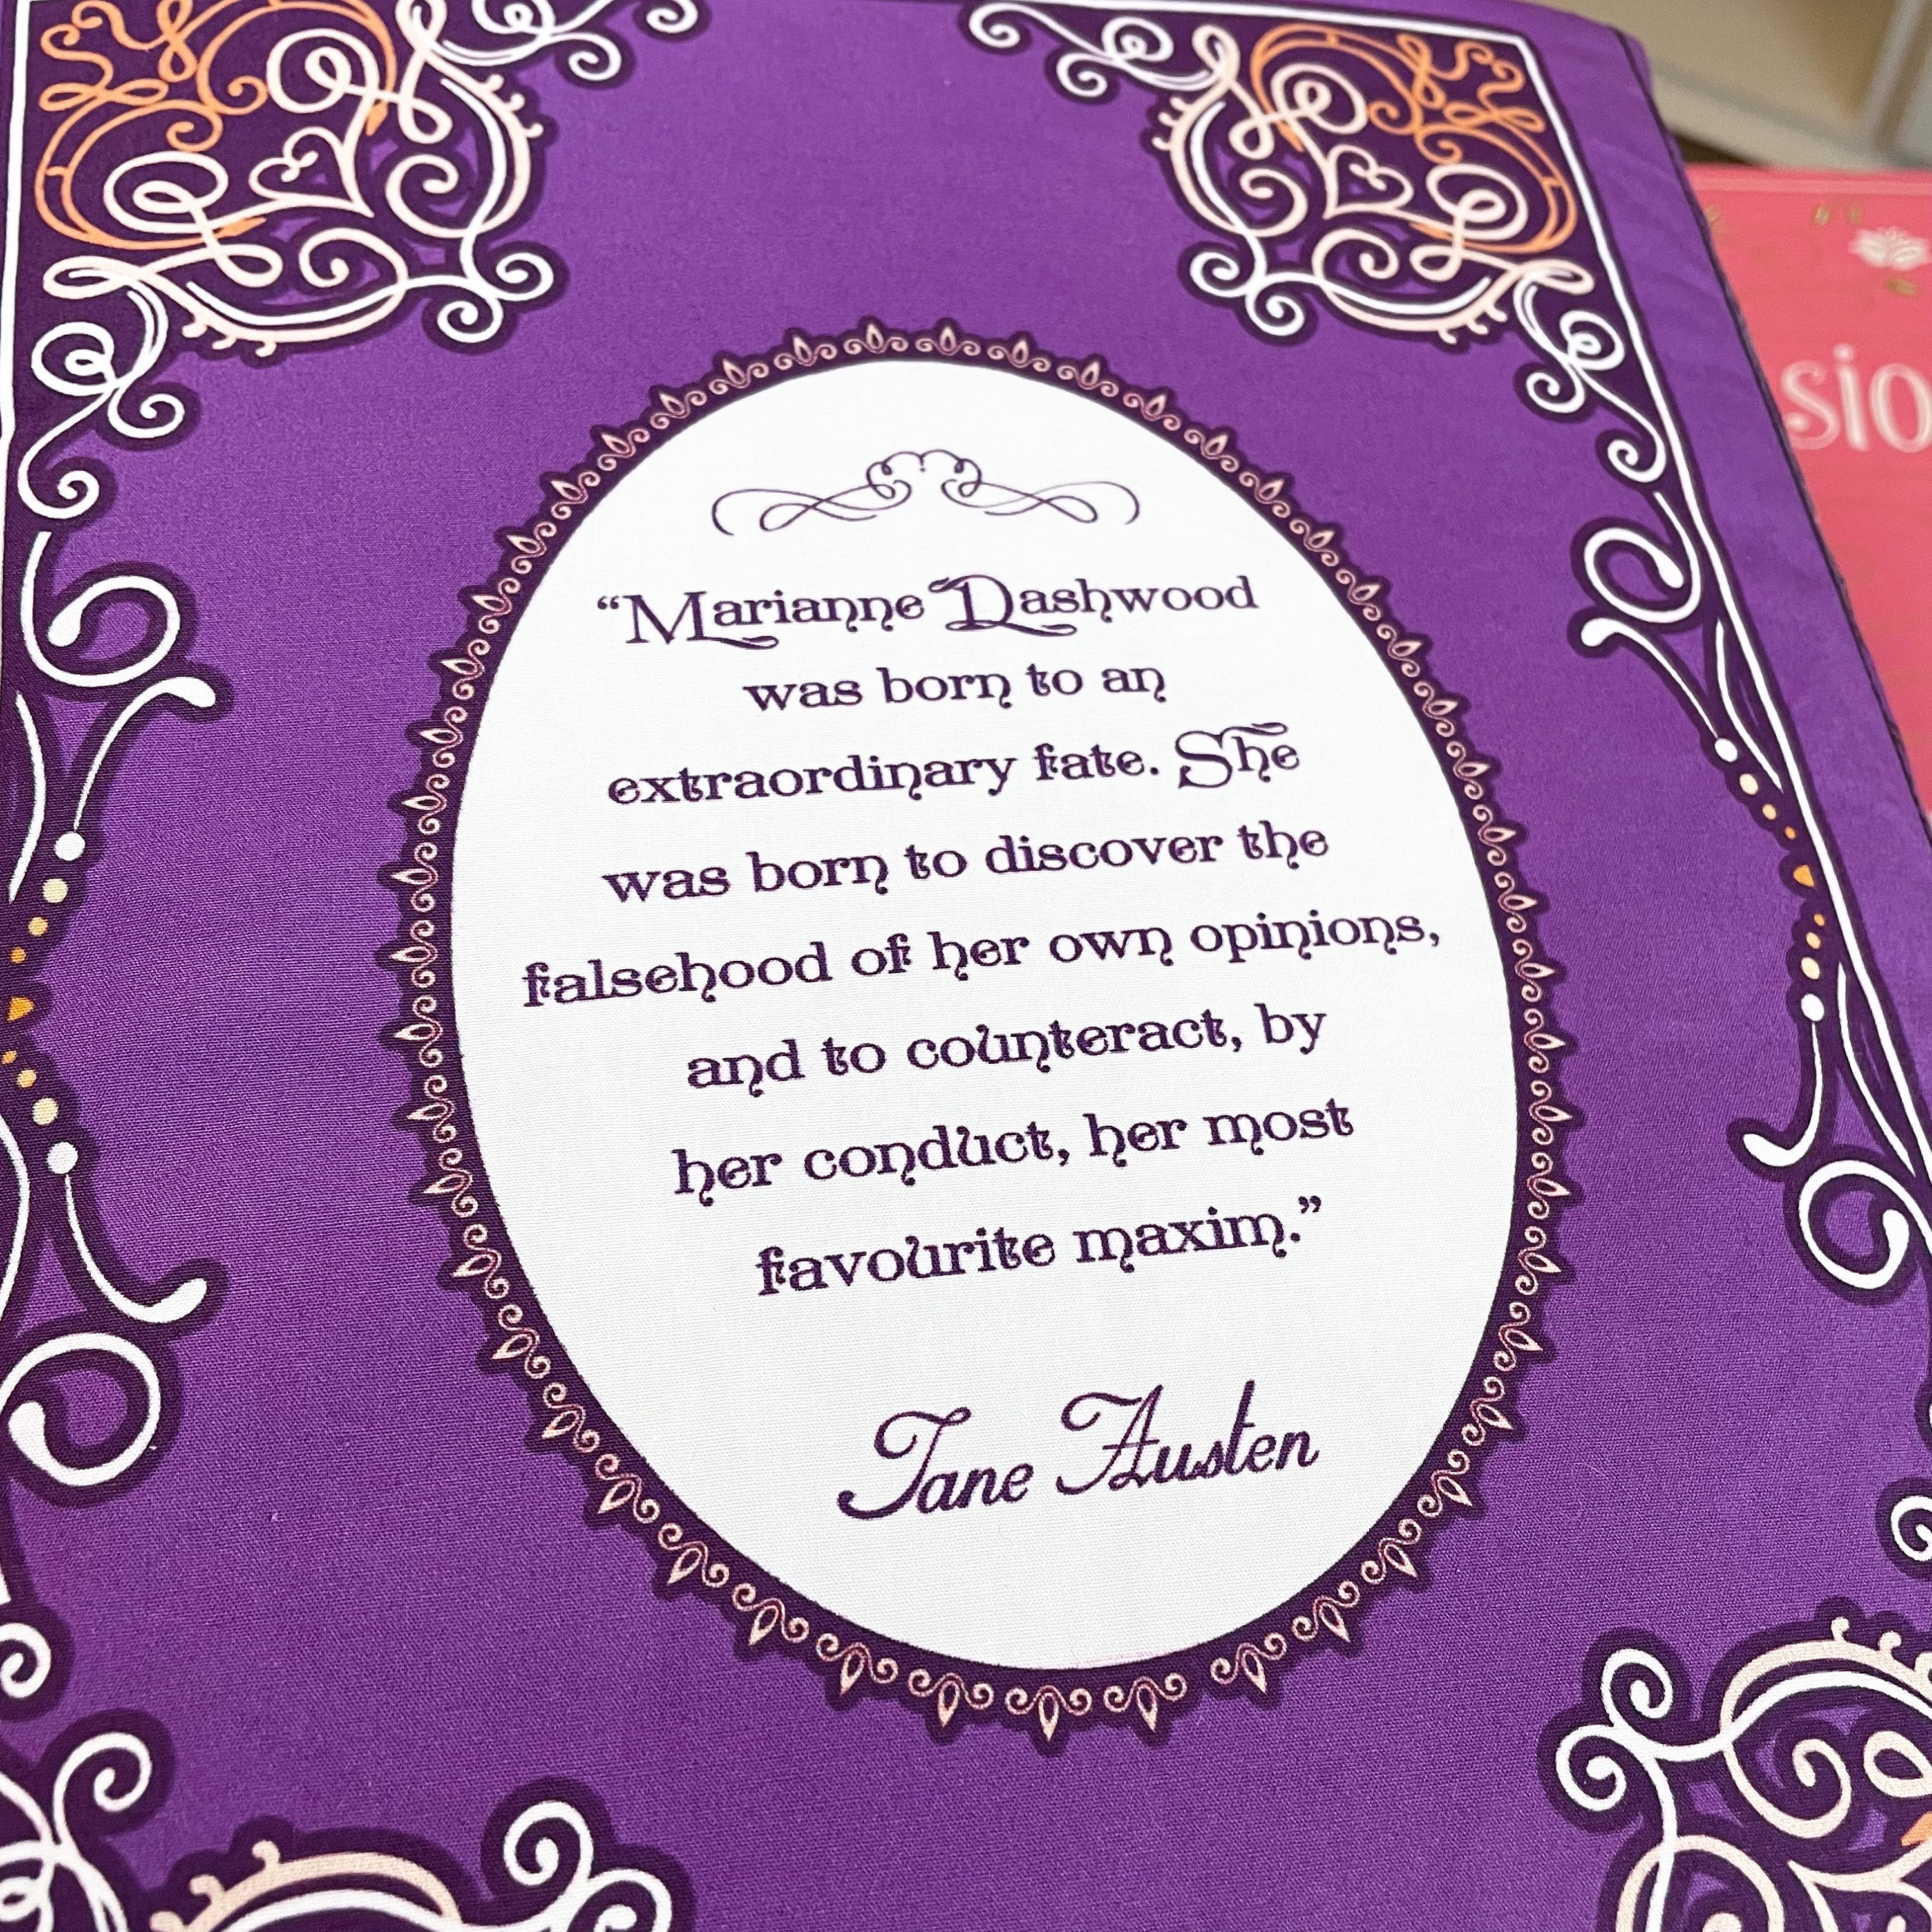 “Marianne Dashwood
was born to an
extraordinary fate. She
was born to discover the
falsehood of her own opinions,
and to counteract, by
her conduct, her most
favourite maxim.”
Jane Austen
sio